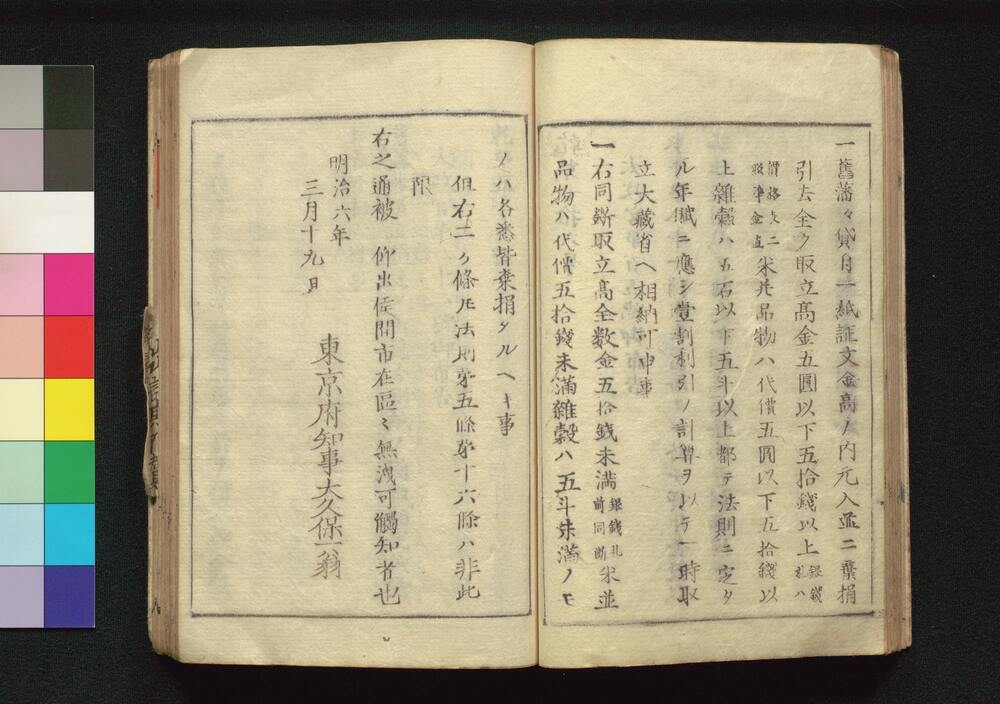 一舊藩々貸付一紙証文金高ノ内元入並ニ棄捐
引去全ク取立高金五圓以下五拾錢以上銀錢札ハ
價格文ニ照準金直米并品物ハ代價五圓以下五拾錢以
上雜穀ハ五石以下五斗以上都テ法則ニ定タ
ル年賦ニ應シ壹割利引ノ計算ヲ以テ一時取
立大藏省ヘ相納可申事
一右同斷取立高全数金五拾錢未満銀錢札前同断米並
品物ハ代價五拾錢未満雜穀ハ五斗未満ノモ
ノハ各悉皆棄捐タルヘキ事
但右二ケ條凡法則第五條第十六條ハ非此
限
右之通被 仰出候間市在區々無洩可觸知者也
明治六年
三月十九日
東京府知事大久保一翁